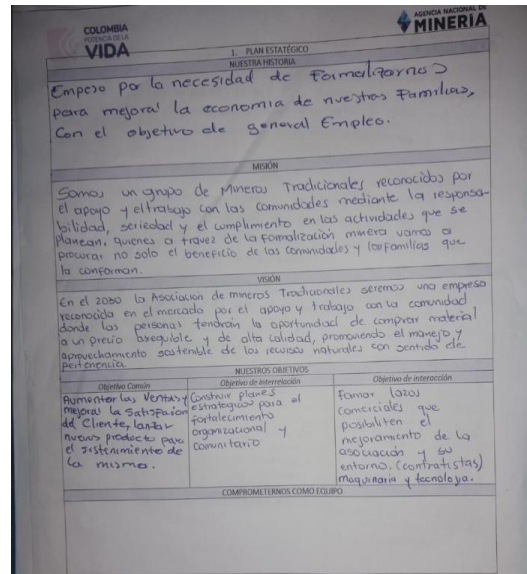 COLOMBIA
POTENCIA DE LA
VIDA
AGENCIA NACIONAL DE
MINERÍA
1. PLAN ESTATÉGICO
NUESTRA HISTORIA
Empeso por la necesidad de Formalizarnos
para mejorar la economia de nuestras Familias,
Con el objetivo de general Empleo.
MISIÓN
Somos un grupo de Mineros Tradicionales reconocidos por
el apoyo y el trabajo con las comunidades mediante la responsa-
bilidad, seriedad y el cumplimento en las actividades que se
planean, quienes a travez de la formalización minera vamos a
procurar no solo el beneficio de las comunidades y las familias que
la conforman.
VISIÓN
En el 2030 la Asociacion de mineros Tradicionales seremos una empresa
reconocida en el mercado por el apoyo y trabajo con la comunidad
donde las personas tendrán la oportunidad de comprar material
a un precio asequible y de alta calidad, promoviendo el manejo y
aprovechamiento sostenible de los recursos naturales con sentido de
pertenencia.
NUESTROS OBJETIVOS
Objetivo Común
Aumentar las ventas y
mejorar la Satisfaion
del Cliente, lanzar
nuevos producto para
el sostenimiento de
la misma.
Objetivo de interrelación
Construir planes
estrategicos para el
fortalecimiento
organizacional y
Comunitario
Objetivo de interacción
Formar lazos
comerciales que
posibiliten el
mejoramiento de la
asociación y su
entorno. (contratistas)
maquinaria y tecnoloya.
COMPROMETERNOS COMO EQUIPO